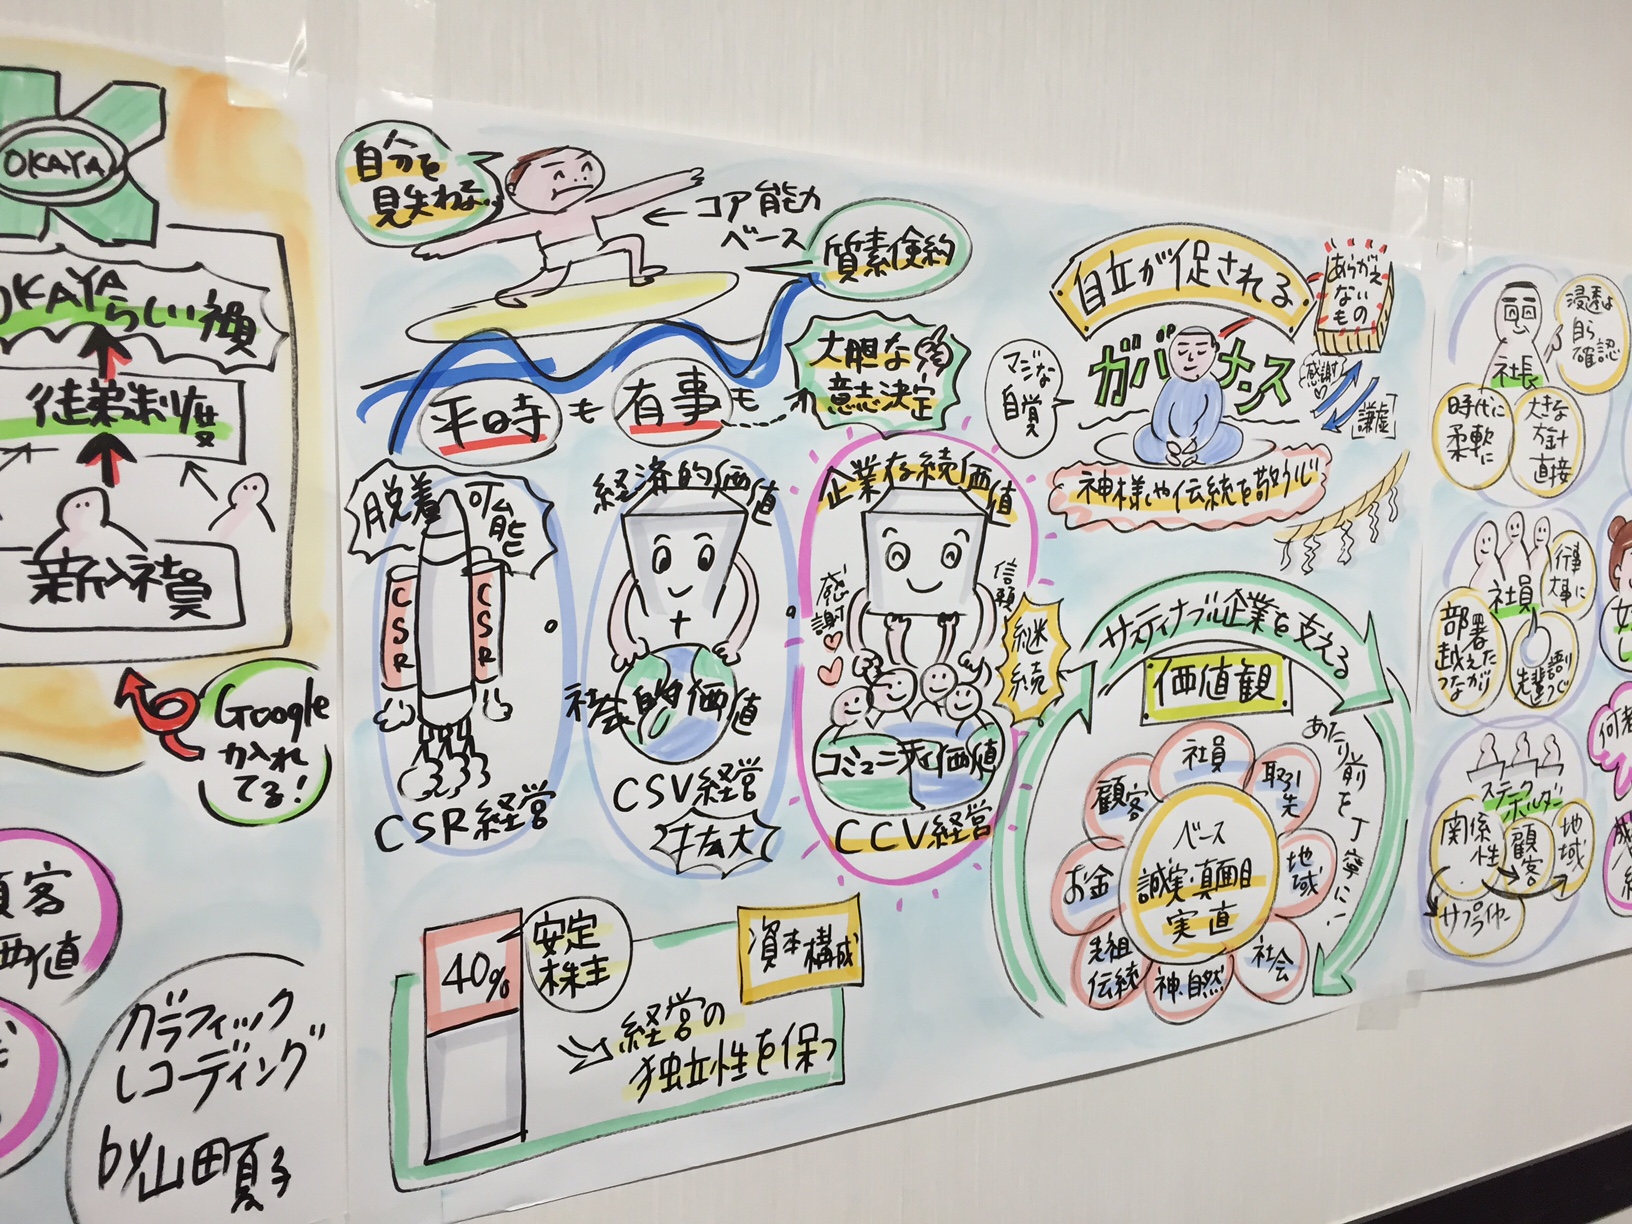 OKAYA
OKAYA
らしい顔
徒弟制度
新入社員
Google
力入れ
てる!
顧客
価値
グラフィック
レコーディング
by山田夏子
自分を
見失わない
コア能力
ベース
質素倹約
大胆な
意志決定
平時も
有事も
脱着
可能
CSR
CSR
CSR経営
経済的価値
+
社会的価値
CSV経営
拡大
企業存続価値
感謝
信頼
継続
コミュニティ価値
CCV経営
40%
安定
株主
資本構成
経営の
独立性を保つ
自立が促される
ガバナンス
マジな
自覚
あらがえ
ない
もの
感謝
謙虚
神様や伝統を敬う心
サスティナブル企業を支える
価値観
あたり前を丁寧に!
社員
取引
先
地
域
社会
神・自然
先祖
伝統
お金
顧客
ベース
誠実・真面目
実直
社長
浸透は
自ら
確認
時代に
柔軟に
大きな
方針
直接
社員
行事
大事に
部署
越えた
つながり
ステークホルダー
関係
性
顧客
地域
サプライヤー